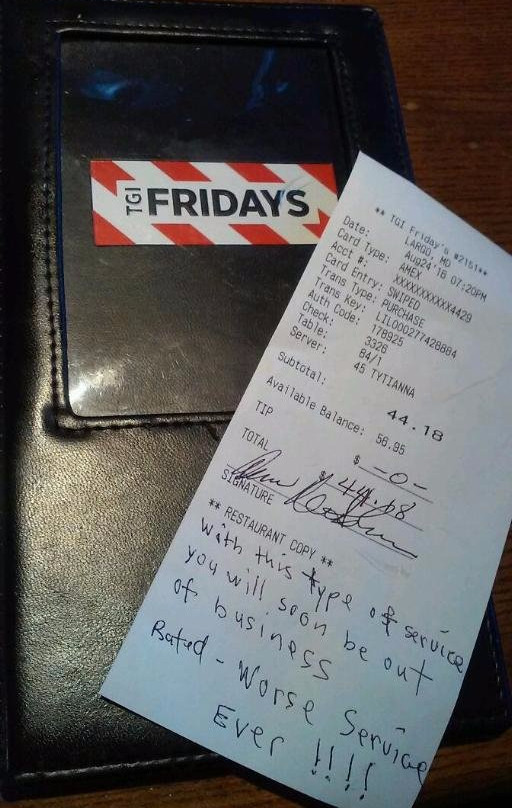 TGI FRIDAYS
** TGI Friday's #2151**
LARGO, MD
Date: Aug24'18 07:20PM
Card Type: AMEX
Acct #: XXXXXXXXXXX4429
Card Entry: SWIPED
Trans Type: PURCHASE
Trans Key: LIL000277428884
Auth Code: 178925
Check: 3326
Table: 84/1
Server: 45 TYTIANNA
Subtotal: 44.18
Available Balance: 56.95
TIP $ -0-
TOTAL $ 44.18
SIGNATURE
** RESTAURANT COPY **
With this type of service
you will soon be out
of business
Rated - Worse Service
Ever !!!!